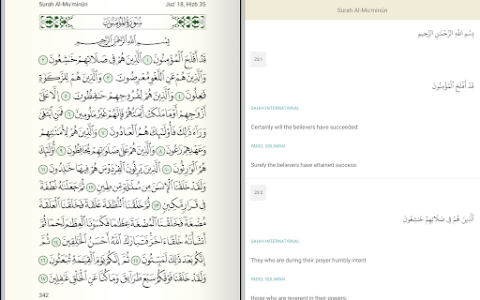 Surah Al-Mu'minūn
Juz' 18, Hizb 35
سُورَةُ المُؤْمِنُونَ
بِسْمِ اللَّهِ الرَّحْمَٰنِ الرَّحِيمِ
قَدْ أَفْلَحَ الْمُؤْمِنُونَ ١ الَّذِينَ هُمْ فِي صَلَاتِهِمْ خَاشِعُونَ ٢
وَالَّذِينَ هُمْ عَنِ اللَّغْوِ مُعْرِضُونَ ٣ وَالَّذِينَ هُمْ لِلزَّكَاةِ
فَاعِلُونَ ٤ وَالَّذِينَ هُمْ لِفُرُوجِهِمْ حَافِظُونَ ٥ إِلَّا عَلَىٰ
أَزْوَاجِهِمْ أَوْ مَا مَلَكَتْ أَيْمَانُهُمْ فَإِنَّهُمْ غَيْرُ مَلُومِينَ ٦ فَمَنِ ابْتَغَىٰ
وَرَاءَ ذَٰلِكَ فَأُولَٰئِكَ هُمُ الْعَادُونَ ٧ وَالَّذِينَ هُمْ لِأَمَانَاتِهِمْ
وَعَهْدِهِمْ رَاعُونَ ٨ وَالَّذِينَ هُمْ عَلَىٰ صَلَوَاتِهِمْ يُحَافِظُونَ ٩ أُولَٰئِكَ
هُمُ الْوَارِثُونَ ١٠ الَّذِينَ يَرِثُونَ الْفِرْدَوْسَ هُمْ فِيهَا خَالِدُونَ ١١
وَلَقَدْ خَلَقْنَا الْإِنسَانَ مِن سُلَالَةٍ مِّن طِينٍ ١٢ ثُمَّ جَعَلْنَاهُ نُطْفَةً
فِي قَرَارٍ مَّكِينٍ ١٣ ثُمَّ خَلَقْنَا النُّطْفَةَ عَلَقَةً فَخَلَقْنَا الْعَلَقَةَ
مُضْغَةً فَخَلَقْنَا الْمُضْغَةَ عِظَامًا فَكَسَوْنَا الْعِظَامَ لَحْمًا ثُمَّ
أَنشَأْنَاهُ خَلْقًا آخَرَ فَتَبَارَكَ اللَّهُ أَحْسَنُ الْخَالِقِينَ ١٤ ثُمَّ إِنَّكُم
بَعْدَ ذَٰلِكَ لَمَيِّتُونَ ١٥ ثُمَّ إِنَّكُمْ يَوْمَ الْقِيَامَةِ تُبْعَثُونَ ١٦
وَلَقَدْ خَلَقْنَا فَوْقَكُمْ سَبْعَ طَرَائِقَ وَمَا كُنَّا عَنِ الْخَلْقِ غَافِلِينَ ١٧
342
Surah Al-Mu'minūn
بِسْمِ اللَّهِ الرَّحْمَٰنِ الرَّحِيمِ
23:1
قَدْ أَفْلَحَ الْمُؤْمِنُونَ
SAHIH INTERNATIONAL
Certainly will the believers have succeeded:
FADEL SOLIMAN
Surely the believers have attained success:
23:2
الَّذِينَ هُمْ فِي صَلَاتِهِمْ خَاشِعُونَ
SAHIH INTERNATIONAL
They who are during their prayer humbly intent
FADEL SOLIMAN
those who are reverent in their prayers,